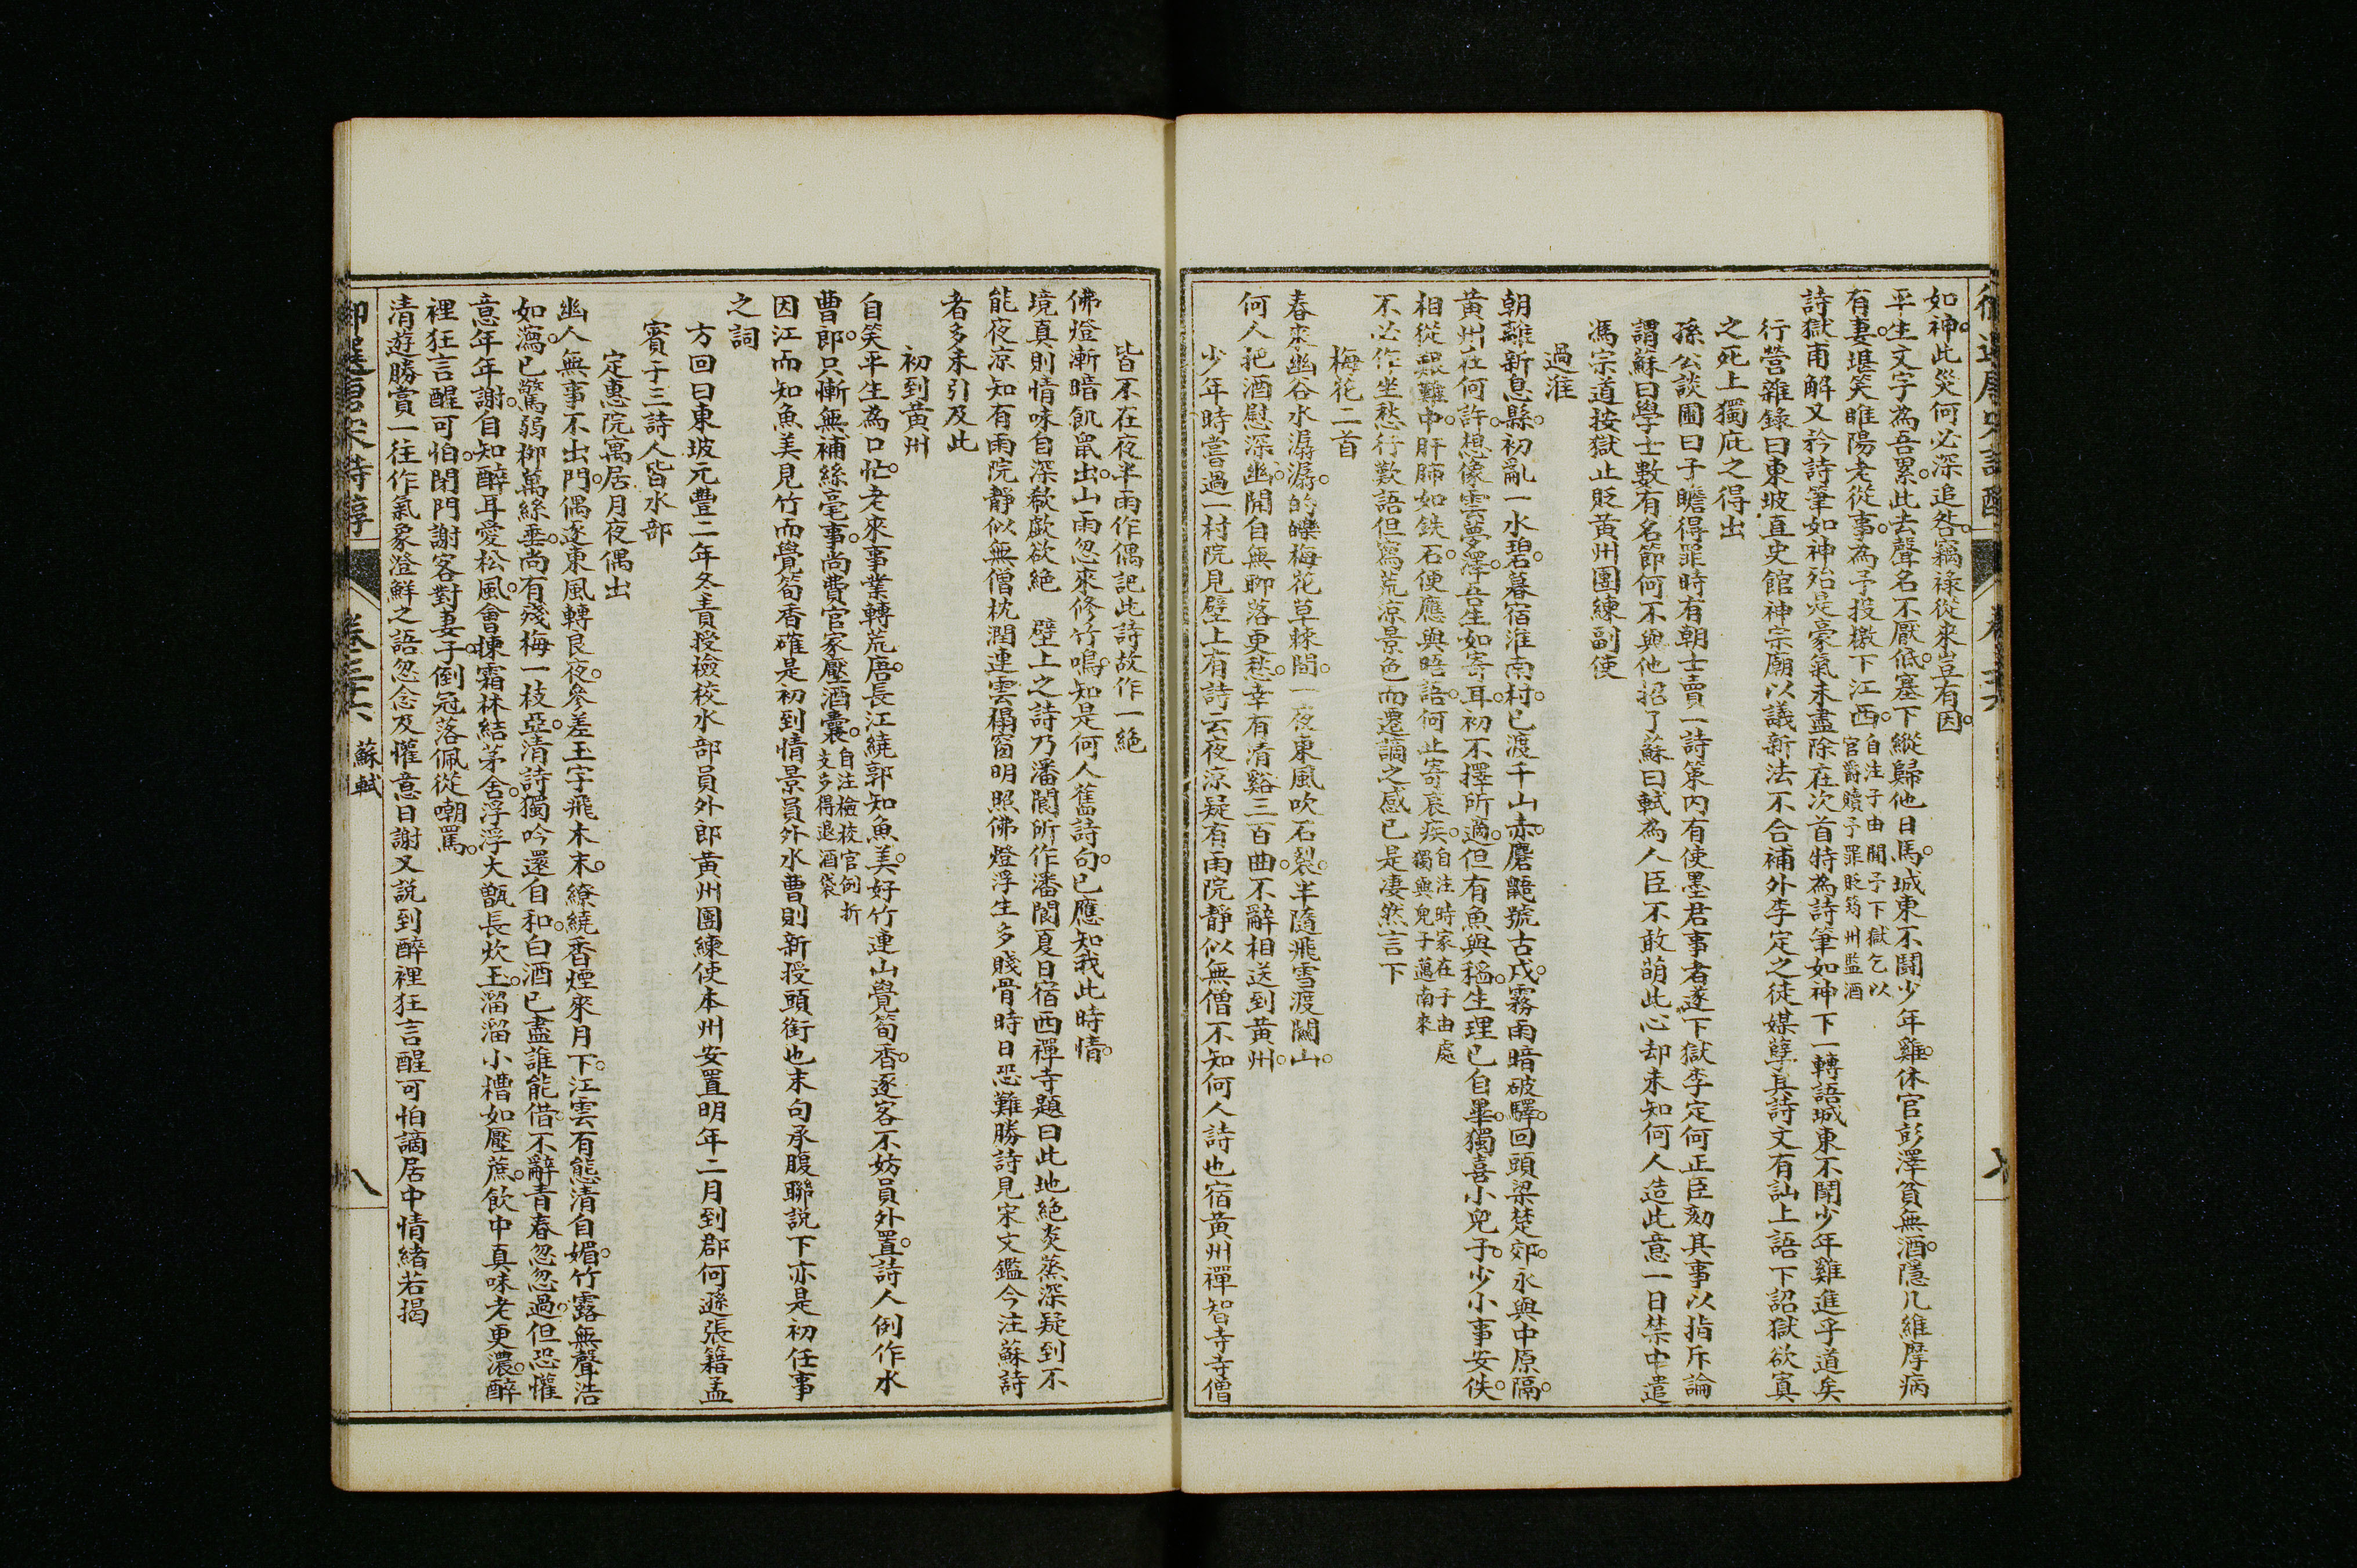 如神此災何必深追咎竊祿從來豈有因
平生文字為吾累此去聲名不厭低塞下縱歸他日馬城東不鬬少年雞休官彭澤貧無酒隱几維摩病
有妻堪笑睢陽老從事為予投檄下江西自注子由聞予下獄乞以官爵贖予罪貶筠州監酒
詩獄甫解又矜詩筆如神殆是豪氣未盡除在次首特為詩筆如神下一轉語城東不鬬少年雞進乎道矣
行營雜錄曰東坡直史館神宗廟以議新法不合補外李定之徒媒孽其詩文有訕上語下詔獄欲寘
之死上獨庇之得出
孫公談圃曰子瞻得罪時有朝士賣一詩策內有使墨君事者遂下獄李定何正臣劾其事以指斥論
謂蘇曰學士數有名節何不與他招了蘇曰軾為人臣不敢萌此心却未知何人造此意一日禁中遣
馮宗道按獄止貶黃州團練副使
過淮
朝離新息縣初亂一水碧暮宿淮南村已渡千山赤麏鼯號古戍霧雨暗破驛回頭梁楚郊永與中原隔
黃州在何許想像雲夢澤吾生如寄耳初不擇所適但有魚與稻生理已自畢獨喜小兒子少小事安佚
相從艱難中肝肺如鉄石便應與晤語何止寄衰疾自注時家在子由處獨與兒子邁南來
不必作坐愁行歎語但寫荒涼景色而遷謫之感已是凄然言下
梅花二首
春來幽谷水潺潺的皪梅花草棘間一夜東風吹石裂半隨飛雪渡關山
何人把酒慰深幽開自無聊落更愁幸有清谿三百曲不辭相送到黃州
少年時嘗過一村院見壁上有詩云夜涼疑有雨院靜似無僧不知何人詩也宿黃州禪智寺寺僧
皆不在夜半雨作偶記此詩故作一絕
佛燈漸暗飢鼠出山雨忽來修竹鳴知是何人舊詩句已應知我此時情
境真則情味自深欷歔欲絕　壁上之詩乃潘閬所作潘閬夏日宿西禪寺題曰此地絕炎蒸深疑到不
能夜涼知有雨院靜似無僧枕潤連雲榻窗明照佛燈浮生多賤骨時日恐難勝詩見宋文鑑今注蘇詩
者多未引及此
初到黃州
自笑平生為口忙老來事業轉荒唐長江繞郭知魚美好竹連山覺筍香逐客不妨員外置詩人例作水
曹郎只慚無補絲毫事尚費官家壓酒囊自注檢校官例折支多得退酒袋
因江而知魚美見竹而覺筍香確是初到情景員外水曹則新授頭銜也末句承腹聯說下亦是初任事
之詞
方回曰東坡元豐二年冬責授檢校水部員外郎黃州團練使本州安置明年二月到郡何遜張籍孟
賓于三詩人皆水部
定惠院寓居月夜偶出
幽人無事不出門偶逐東風轉良夜參差玉宇飛木末繚繞香煙來月下江雲有態清自媚竹露無聲浩
如瀉已驚弱柳萬絲垂尚有殘梅一枝亞清詩獨吟還自和白酒已盡誰能借不辭青春忽忽過但恐懽
意年年謝自知醉耳愛松風會揀霜林結茅舍浮浮大甑長炊玉溜溜小槽如壓蔗飲中真味老更濃醉
裡狂言醒可怕閉門謝客對妻子倒冠落佩從嘲罵
清遊勝賞一往作氣象澄鮮之語忽念及懽意日謝又說到醉裡狂言醒可怕謫居中情緒若揭
御選唐宋詩醇　卷三十六　蘇軾　八